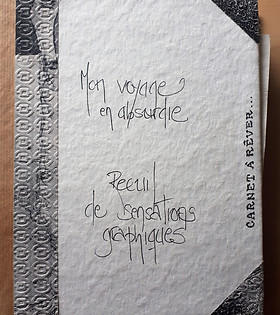 Mon voyage
en absurdie
Recueil
de sensations
graphiques
CARNET À RÊVER...